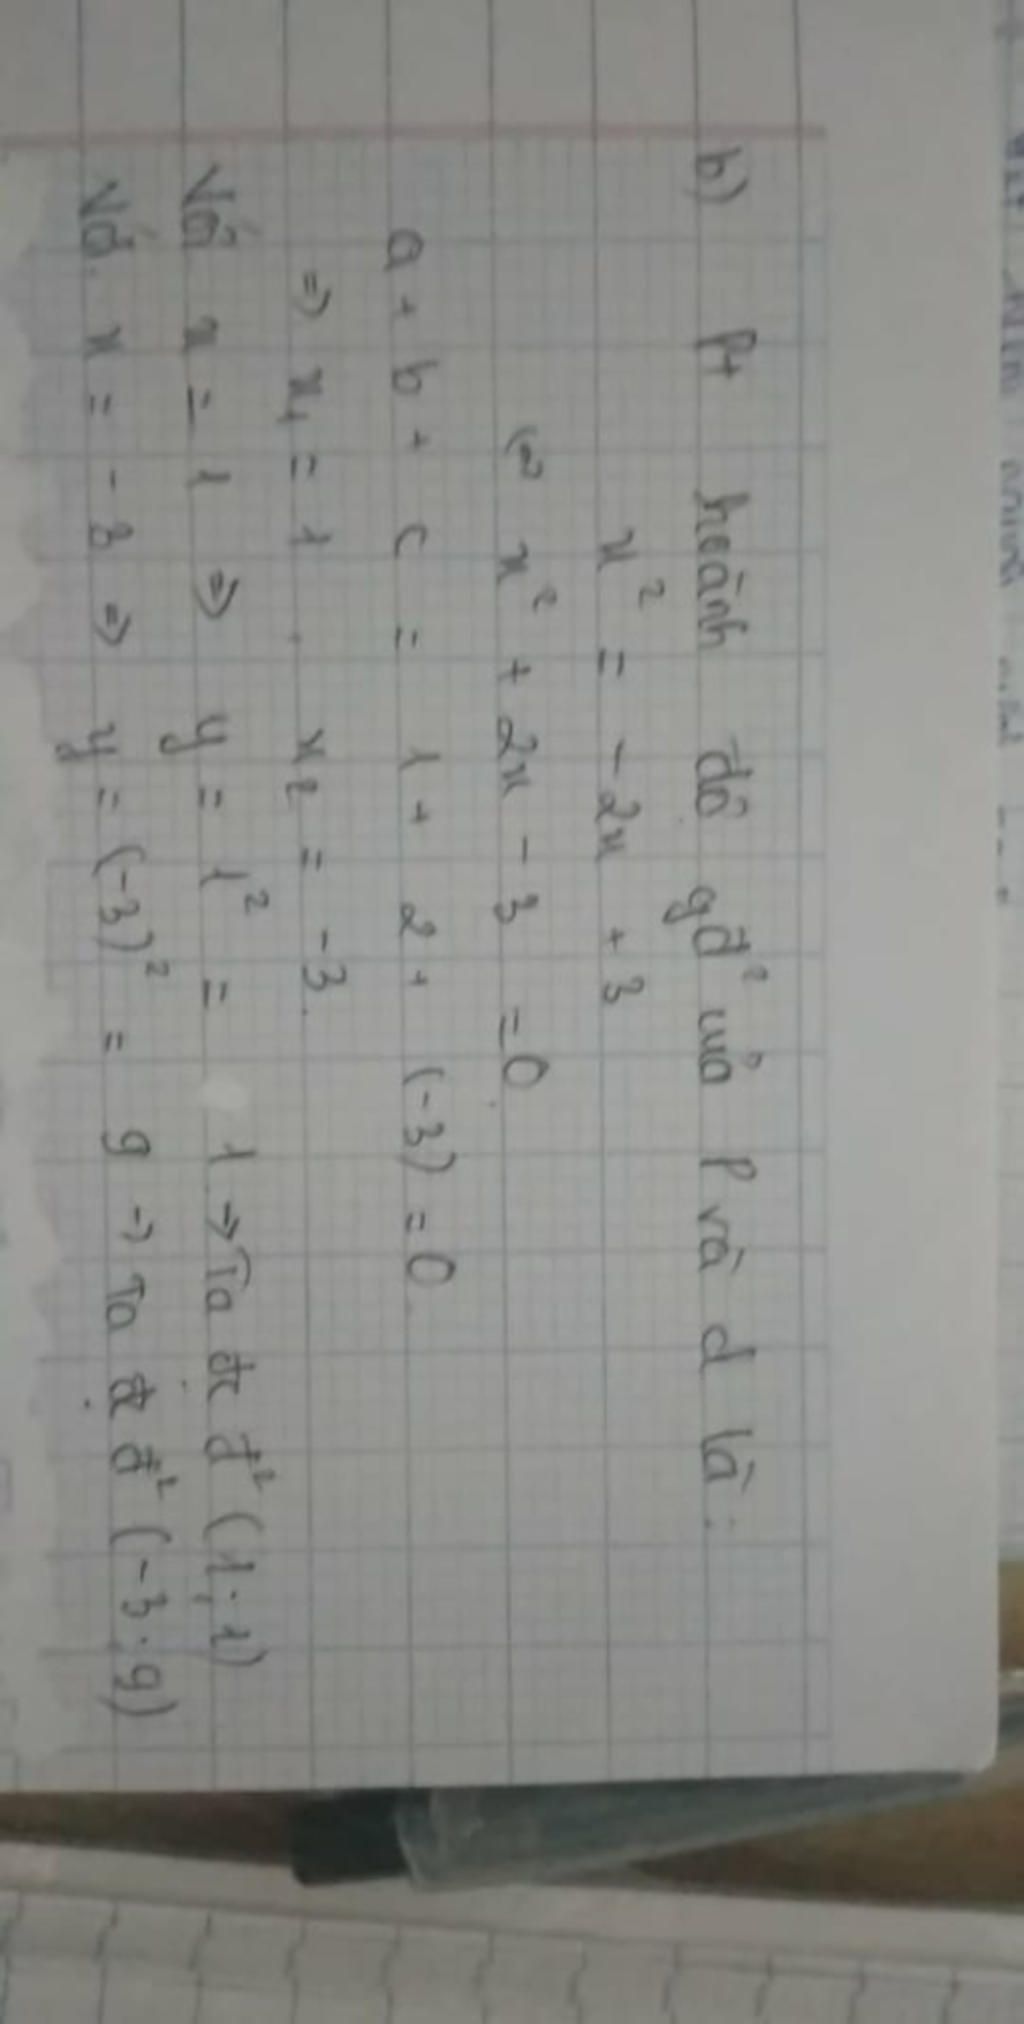 b) Pt hoành độ gđ² của P và d là:
x² = -2x + 3
(=) x² + 2x - 3 = 0.
a + b + c = 1 + 2 + (-3) = 0.
=> x₁ = 1. x₂ = -3.
Với x = 1 => y = 1² = 1 -> Ta đc đ² (1; 1)
Với x = -3 => y = (-3)² = 9 -> Ta đc đ² (-3; 9)